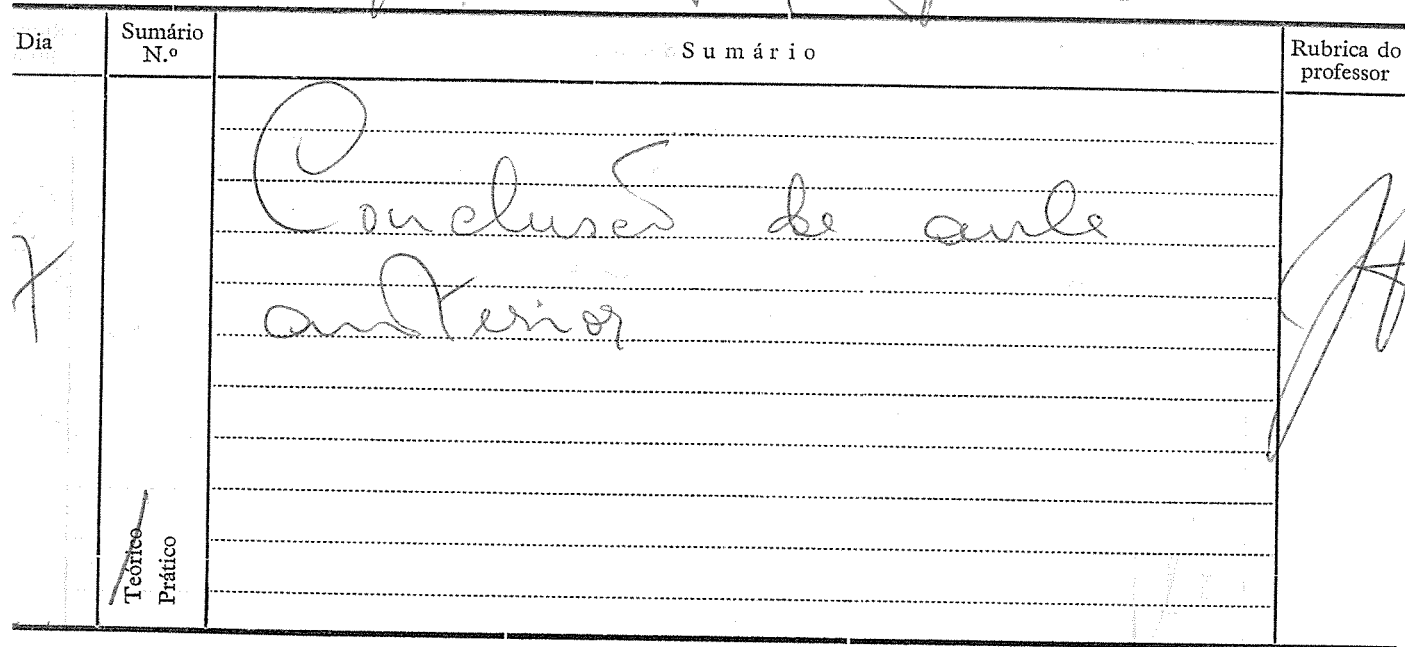 Dia Sumário N.º Sumário Rubrica do professor
7
Conclusão da aula
anterior
Teórico
Prático